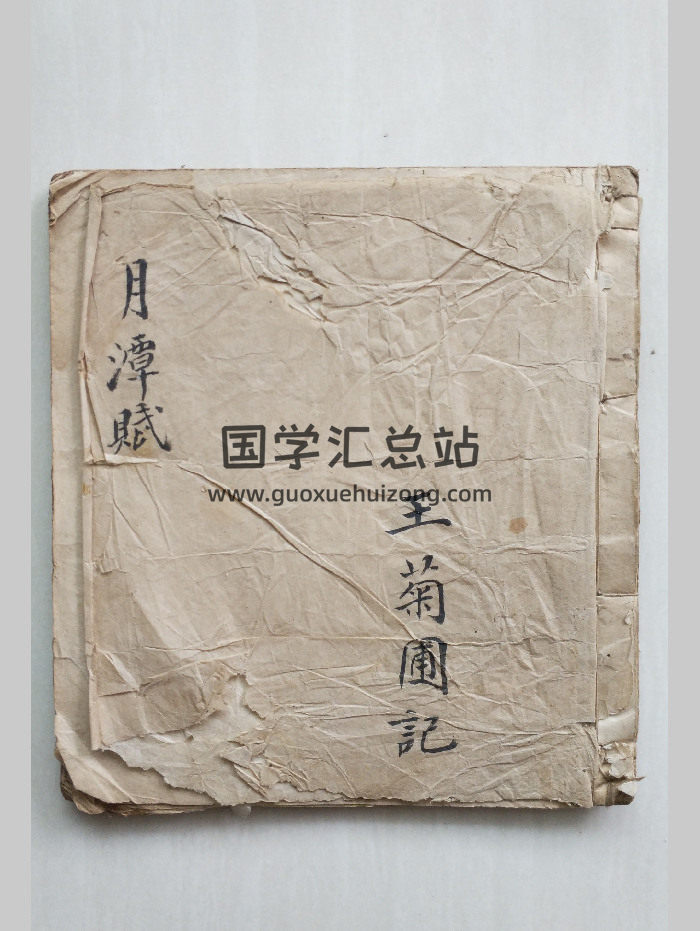 月潭賦
国学汇总站
www.guoxuehuizong.com
王菊圃記